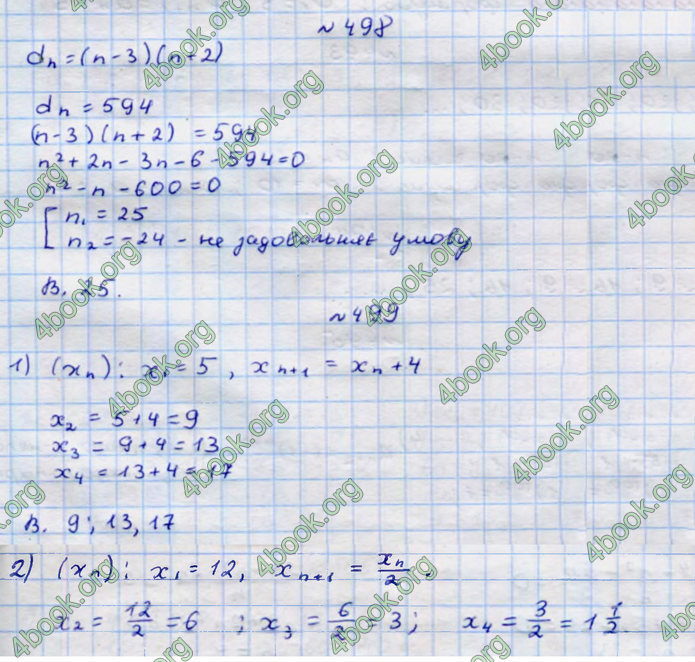 №498
dₙ = (n-3)(n+2)
dₙ = 594
(n-3)(n+2) = 594
n² + 2n - 3n - 6 - 594 = 0
n² - n - 600 = 0
[ n₁ = 25
n₂ = -24 - не задовольняє умову
В. 25.
№499
1) (xₙ): x₁ = 5, xₙ₊₁ = xₙ + 4
x₂ = 5+4 = 9
x₃ = 9+4 = 13
x₄ = 13+4 = 17
В. 9; 13, 17
2) (xₙ): x₁ = 12, xₙ₊₁ = xₙ/2.
x₂ = 12/2 = 6 ; x₃ = 6/2 = 3; x₄ = 3/2 = 1 1/2.